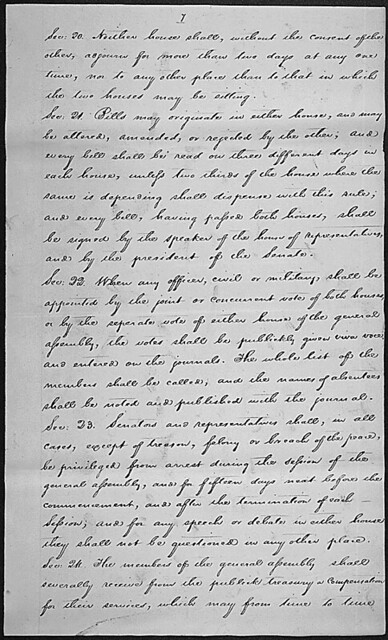 7
Sec: 20. Neither house shall, without the consent of the
other, adjourn for more than two days at any one
time, nor to any other place than to that in which
the two houses may be sitting.
Sec: 21. Bills may originate in either house, and may
be altered, amended, or rejected by the other; and
every bill shall be read on three different days in
each house, unless two thirds of the house where the
same is depending shall dispense with this rule;
and every bill, having passed both houses, shall
be signed by the speaker of the house of representatives,
and by the president of the Senate.
Sec: 22. When any officer, civil or military, shall be
appointed by the joint or concurrent vote of both houses
or by the seperate vote of either house of the general
assembly, the votes shall be publickly given viva voce
and entered on the journals. The whole list of the
members shall be called, and the names of absentees
shall be noted and published with the journal.
Sec: 23. Senators and representatives shall, in all
cases, except of treason, felony or breach of the peace,
be privileged from arrest during the session of the
general assembly, and for fifteen days next before the
commencement, and after the termination of each
session; and for any speech or debate in either house
they shall not be questioned in any other place.
Sec: 24. The members of the general assembly shall
severally receive from the publick treasury a compensation
for their services, which may from time to time